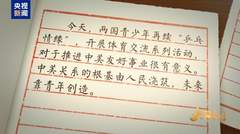 央视新闻
今天，两国青少年再续“乒乓
情缘”，开展体育交流系列活动，
对于推进中美友好事业很有意义。
中美关系的根基由人民浇筑，未来
靠青年创造。